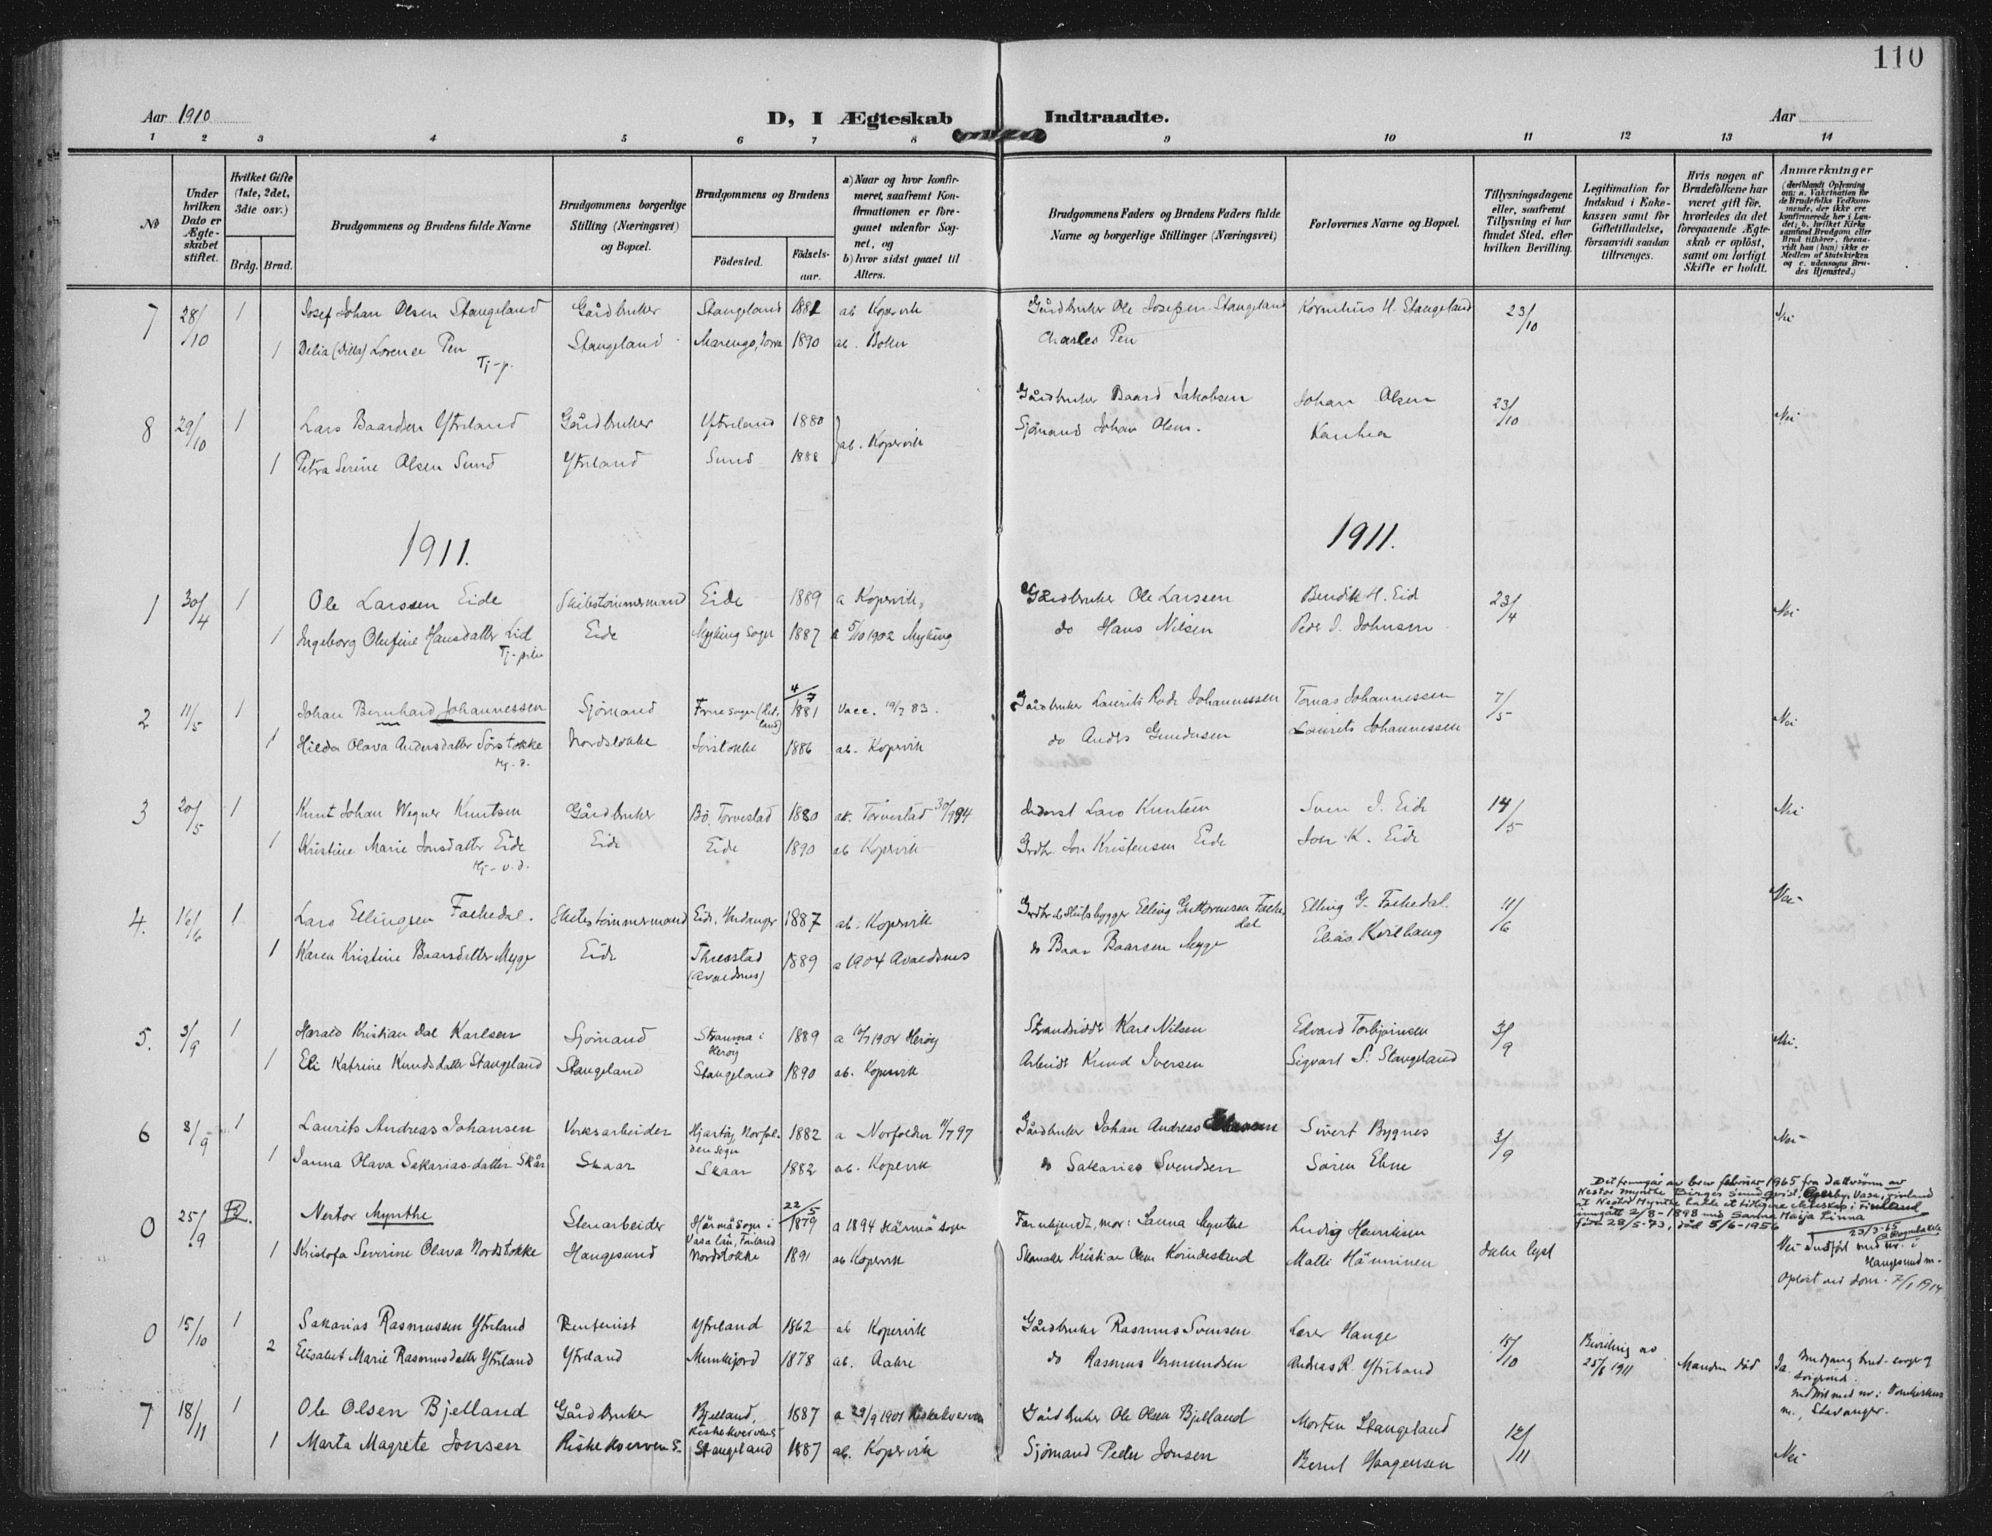 110
Aar 1910
D, I Ægteskab Indtraadte.
Aar
1 2 3 4 5 6 7 8 9 10 11 12 13 14
№
Under hvilken Dato er Ægteskabet stiftet.
Hvilket Gifte (1ste, 2det, 3die osv.)
Brdg. Brud.
Brudgommens og Brudens fulde Navne
Brudgommens borgerlige Stilling (Næringsvei) og Bopæl.
Brudgommens og Brudens
Fødested.
Fødselsaar.
a) Naar og hvor konfirmeret, saafremt Konfirmationen er foregaaet udenfor Sognet, og
b) hvor sidst gaaet til Alters.
Brudgommens Faders og Brudens Faders fulde Navne og borgerlige Stillinger (Næringsvei)
Forlovernes Navne og Bopæl.
Tillysningsdagene eller, saafremt Tillysning ei har fundet Sted, efter hvilken Bevilling.
Legitimation for Indskud i Enkekassen samt for Giftetilladelse, forsaavidt saadan tiltrænges.
Hvis nogen af Brudefolkene har været gift før, hvorledes da det foregaaende Ægteskab er opløst, samt om lovligt Skifte er holdt.
Anmærkninger
(deriblandt Oplysning om: a. Vakcination for de Brudefolks Vedkommende, der ikke ere konfirmerede her i Landet; b. hvilket Kirkesamfund Brudgom eller Brud tilhører, forsaavidt han (hun) ikke er Medlem af Statskirken og c. udensogns Brudes Hjemsted.)
7 28/10 1 Josef Johan Olsen Stangeland Gårdbruker Stangeland 1881 ab Kopervik Gårdbruker Ole Josefsen Stangeland Kornelius H. Stangeland 23/10 Nei
1 Delia (Dilla) Lorense Pen Stangeland Marengo, Iova 1890 ab. Charles Pen
Tj-p.
8 29/10 1 Lars Baardsen Ytreland Gårdbruker Ytreland 1880 ab. Kopervik Gårdbruker Baard Jakobsen Johan Olsen 23/10 Nei
1 Petra Serine Olsen Sund Ytreland Sund 1888 Sjømand Johan Olsen.
1911. 1911.
1 30/4 1 Ole Larssen Eide Skibstømmermand Eide 1889 a Kopervik, Gårdbruker Ole Larssen Bendik H. Eid 23/4 Nei
1 Ingeborg Olufine Hansdatter Lid Eide sogn 1887 a 5/10 1902 do Hans Nilsen Peder J. Johnsen
2 11/5 1 Johan Bernhard Johannessen Sjømand 4/7 1881 Vacc. 19/7 83. Gårdbruker Laurits Johannessen Tomas Johannessen 7/5 Nei
1 Hilda Olava Andersdatter Sørstokke Nordstokke Sørstokke 1886 ab. Kopervik do Anders Laurits Johannessen
3 20/5 1 Knut Johan Wegner Knutsen Gårdbruker Bø, Torvestad 1880 ab. Torvestad 30/9 94 Inderst Lars Knutsen Sven J. Eide 14/5 Nei
1 Kristine Marie Jonsdatter Eide Eide Eide 1890 ab Kopervik Grdbr. Jon Kristensen Eide Jon K. Eide
4. 16/6 1 Lars Ellingsen Fachedal. Skibstømmermand 1887 ab. Kopervik Elling Guttormsen Fachedal Elling G. Fachedal. 11/6 Nei
1 Karen Kristine Baarsdatter Myge Eide (Avaldsnes) 1889 a 1904 Avaldsnes do Baar Baarsen Myge Elias Kvilhaug
5. 3/9 1 Harald Kristian Dal Karlsen Sjømand Strauma i Herøy 1889 a 1904 Herøy Karl Nilsen Edvard Torbjørnsen 3/9 Nei.
1 Eli Katrine Knudsdatter Stangeland Stangeland Stangeland 1890 ab. Kopervik Arbeider Knud Iversen Sigvart S. Stangeland
6 8/9 1 Laurits Andreas Johansen Verksarbeider Hjartøy, Norfolden sogn 1882 a Norfolden 11/7 97 Gårdbruker Johan Andreas Sivert Bygnes 3/9 Nei
1 Janna Olava Sakarias-datter Skår Skaar Skaar 1882 ab. Kopervik do Sakarias Svendsen Søren Ebne
0 25/9 Nestor Mynthe Stenarbeider Härmä sogn i Vasa län, Finland 22/5 1879 a 1894 Härmä sogn Far ukjendt, mor: Sanna Mynthe Ludvig Henriksen Ikke lyst
1 Kristofa Severine Olava Nordstokke Haugesund Nordstokke 1891 ab Kopervik Kristian Olsen Matti Hänninen
Det fremgår av brev februar 1965 fra dattersønn av
Nestor Mynthe Birger Sundqvist, Vasa, Finland
at Nestor Mynthe hadde et tidligere ekteskap i Finland
inngått 2/8-1898 med Sanna Maija Linna
født 28/5-73, død 5/6-1956
23/3-65
Nei Indført med nr. i
Haugesund m.
Opløst ved dom. 7/1 1914
0 15/10 1 Sakarias Rasmussen Ytreland Rentenist Ytreland 1862 ab Kopervik Gårdbruker Rasmus Svensen Lærer Hauge 15/10 Bevilling av 25/8 1911 Manden død Ja
2 Elisabet Marie Rasmusdatter Ytreland Ytreland Munkejord 1878 ab. Aakre do Rasmus Vermundsen Andreas R. Ytreland
Indført med nr. i Domkirkens
m., Stavanger.
7 18/11 1 Ole Olsen Bjelland Gårdbruker Bjelland, Riskekvervens 1887 a 29/9 1901 Riskekverven Gårdbruker Ole Olsen Bjelland Morten Stangeland 12/11 Nei
1 Marta Magrete Jonsen Riskekverven S. Stangeland 1887 ab. Kopervik Sjømand Peder Jonsen Bernt Haagensen